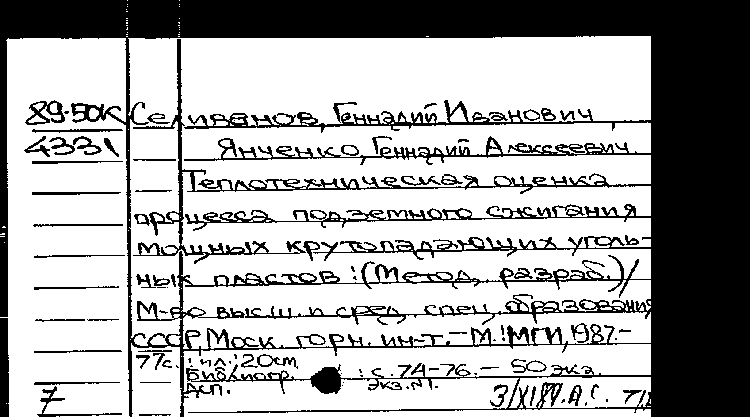 89-50К Селиванов, Геннадий Иванович,
4331 Янченко, Геннадий Алексеевич.
Теплотехническая оценка
процесса подземного сжигания
мощных крутопадающих уголь-
ных пластов : (Метод. разраб.) /
М-во высш. и сред. спец. образования
СССР, Моск. горн. ин-т. - М.: МГИ, 1987.-
77с. : ил. ; 20см.
Библиогр. : с. 74-76. - 50 экз.
Экз. №1.
7